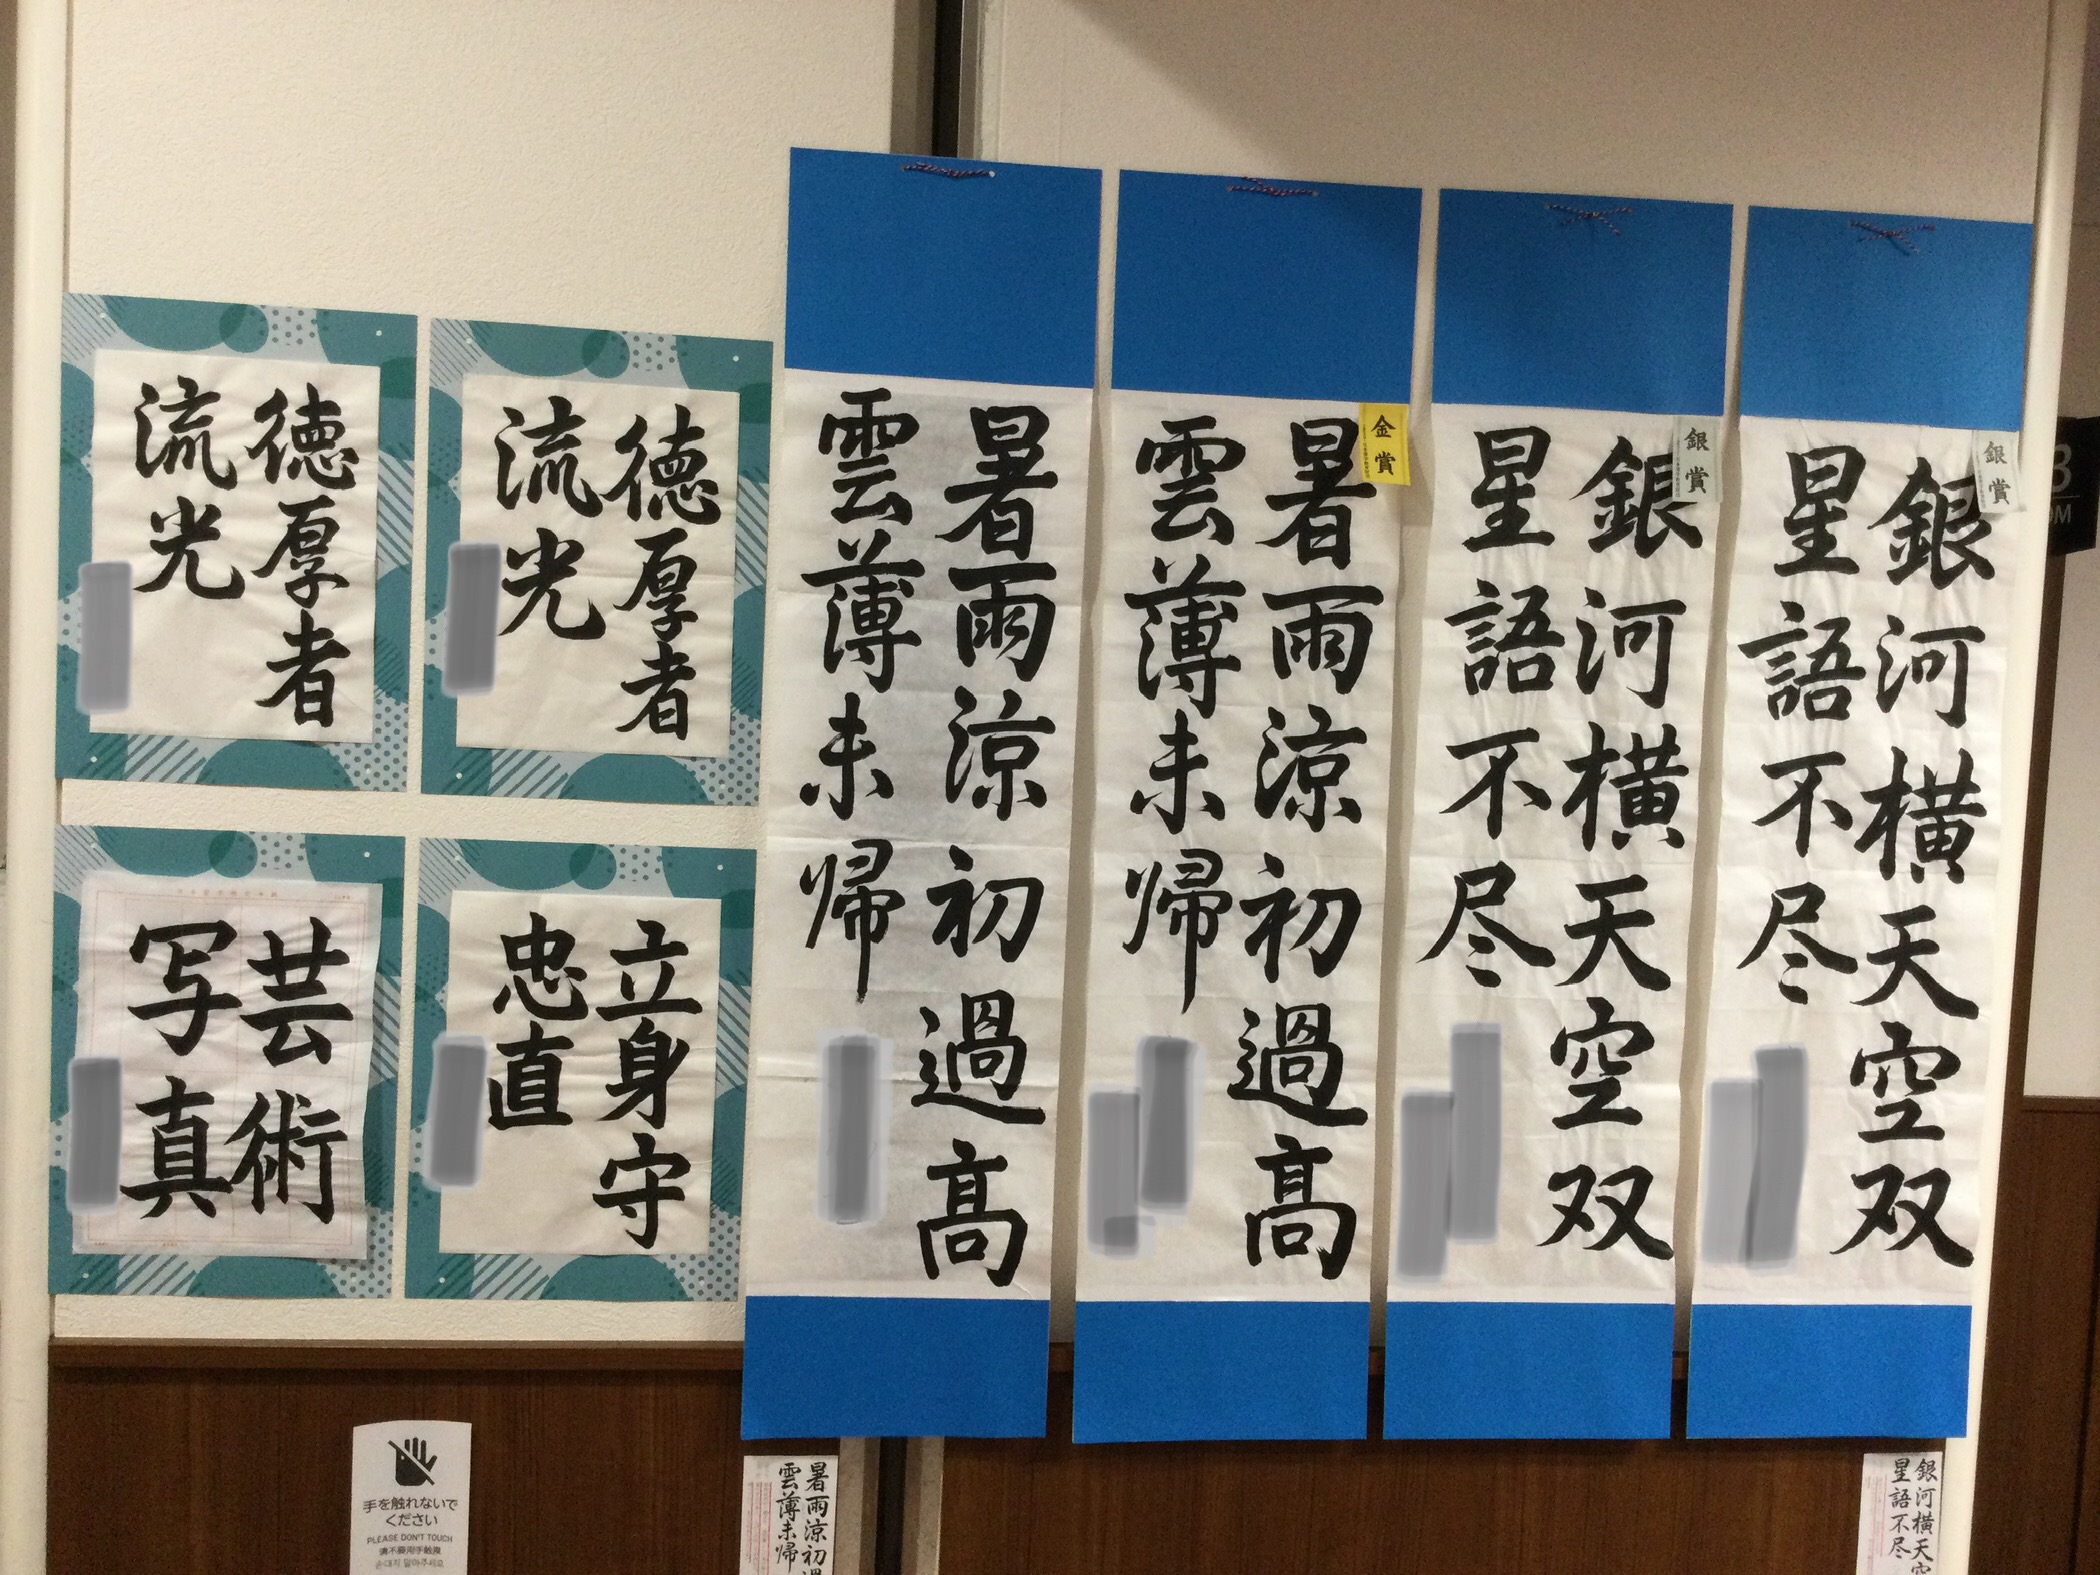 銀賞
銀河横天空双
星語不尽
銀賞
銀河横天空双
星語不尽
金賞
暑雨涼初過高
雲薄未帰
暑雨涼初過高
雲薄未帰
徳厚者
流光
徳厚者
流光
立身守
忠直
芸術
写真
手を触れないで
ください
PLEASE DON'T TOUCH
请不要用手触摸
손대지 말아주세요
暑雨涼初過
雲薄未帰
銀河横天空
星語不尽